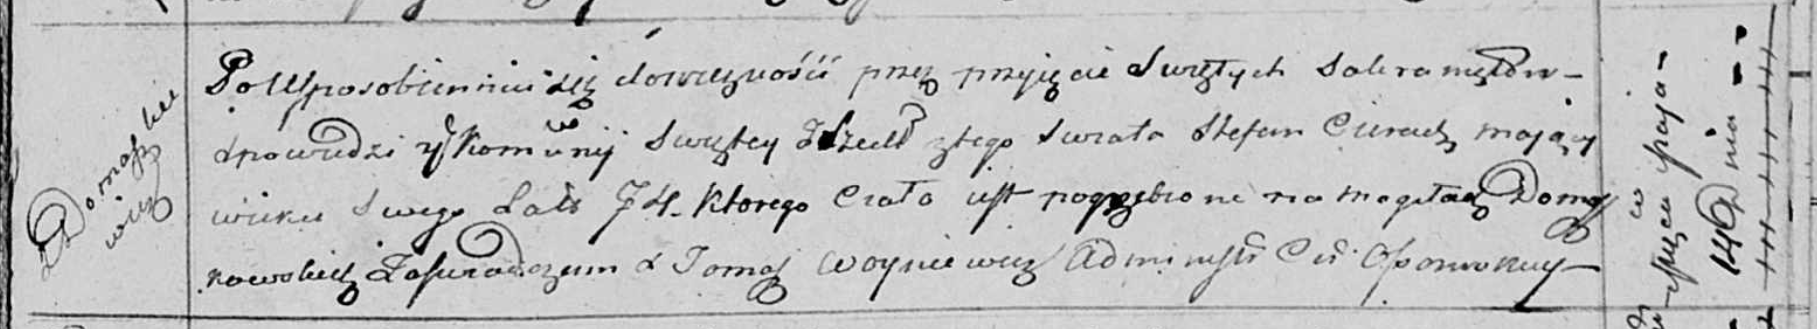 Domaszkie
wicz
Po Usposobieniu się dowieczności przez przyięcie Swiętych Sakramętow –
spowiedzi y Kommunij Swiętey Zszedł ztego Swiata Stefan Cierach maiący
wieku Swego Lat 74. Ktorego Ciało iest pogrzebione na mogiłach Doma
kowskich Zaswiadczam X Tomasz Woyniewicz Administr Cer.
w
miesiącu Maja –
14 Dnia – –